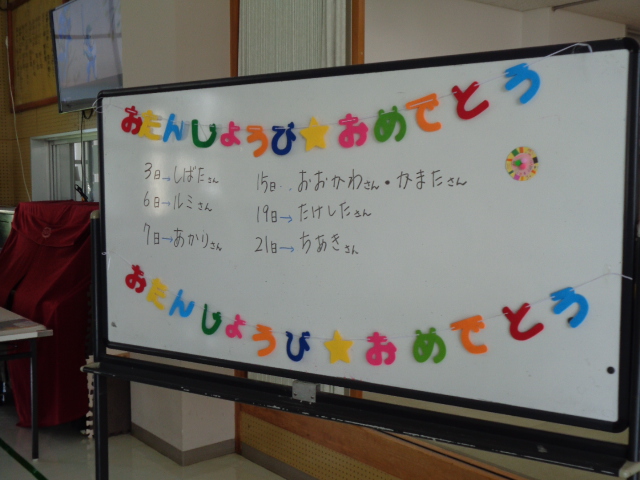 おたんじょうび★おめでとう
3日→しばたさん
6日→ルミさん
7日→あかりさん
15日‥おおかわさん・かまたさん
19日→たけしたさん
21日→ちあきさん
おたんじょうび★おめでとう